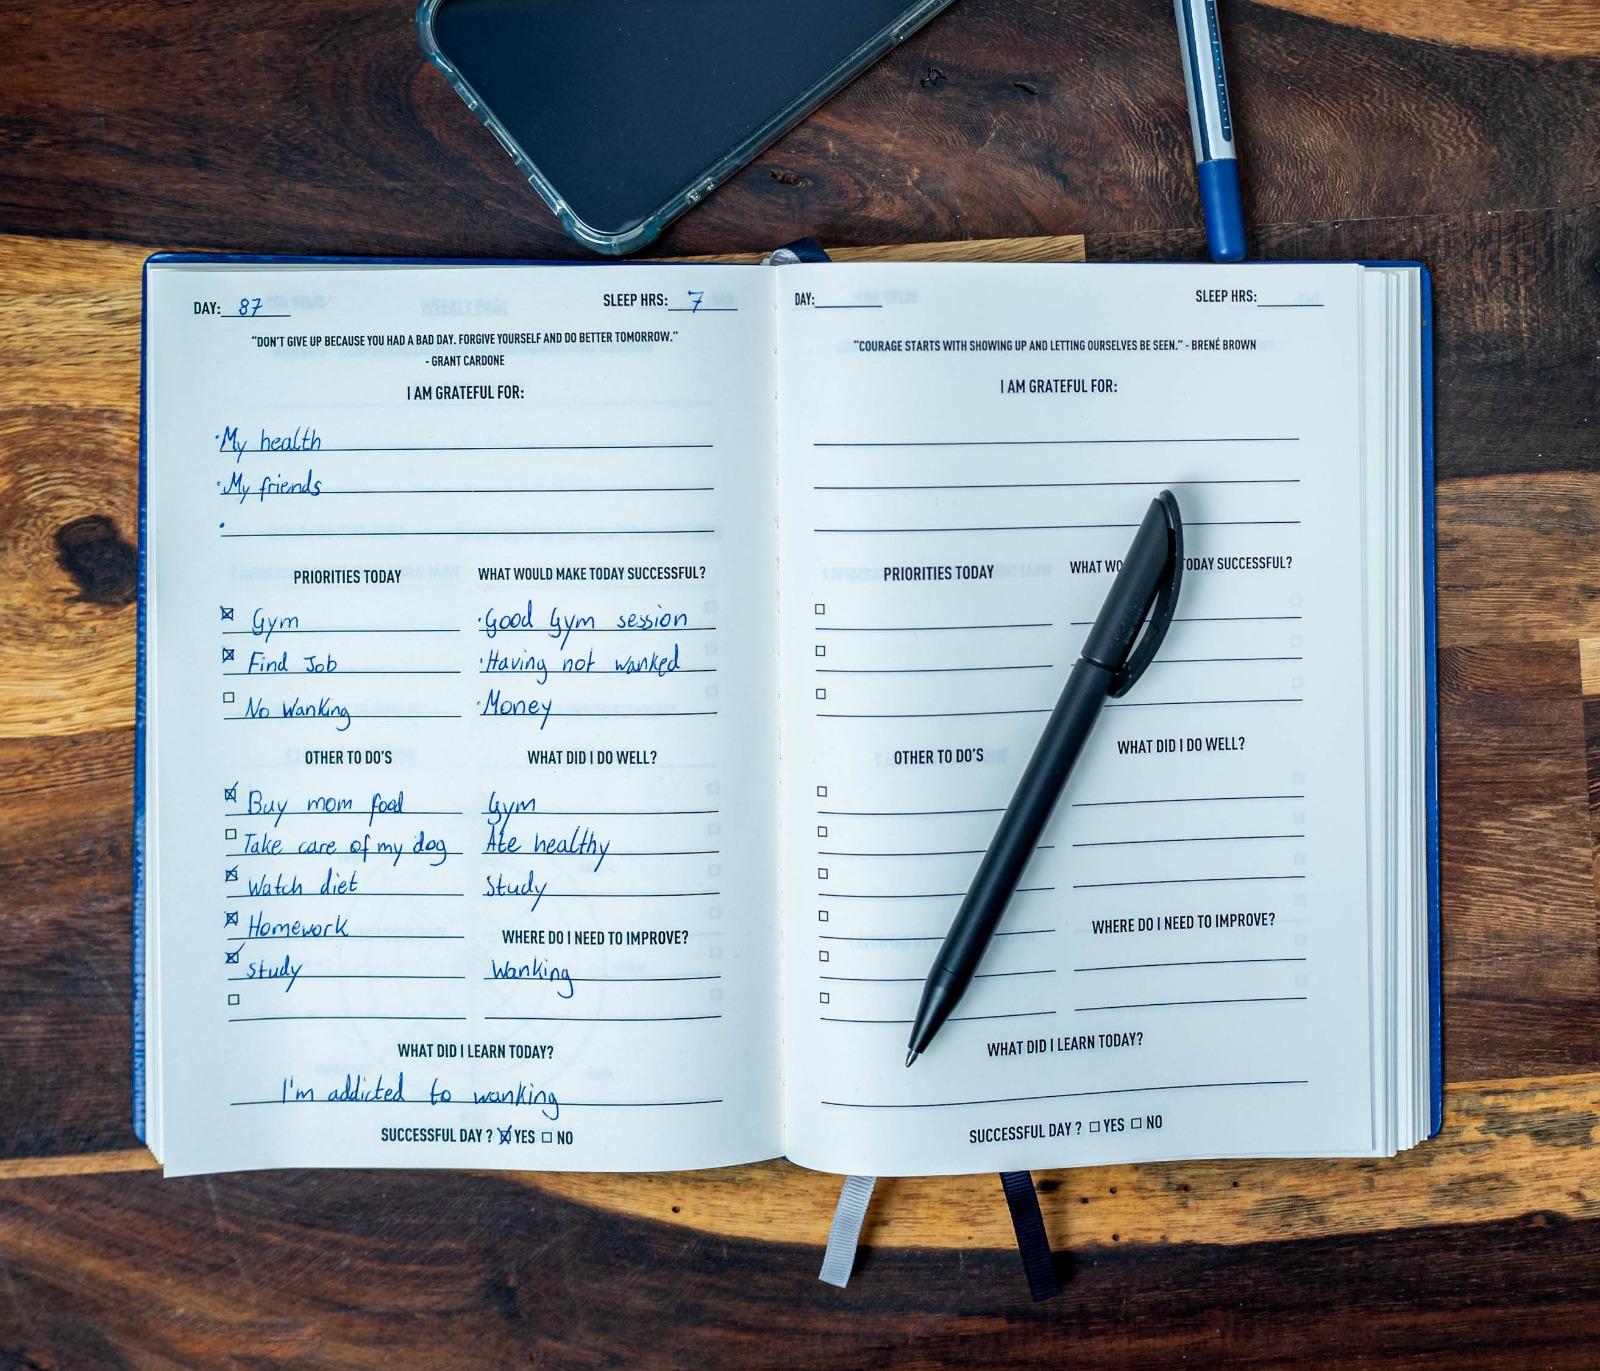 DAY: 87
SLEEP HRS: 7
"DON'T GIVE UP BECAUSE YOU HAD A BAD DAY. FORGIVE YOURSELF AND DO BETTER TOMORROW."
- GRANT CARDONE
I AM GRATEFUL FOR:
· My health
· My friends
·
PRIORITIES TODAY
☒ Gym
☒ Find Job
☐ No Wanking
WHAT WOULD MAKE TODAY SUCCESSFUL?
· Good Gym session
· Having not wanked
· Money
OTHER TO DO'S
☒ Buy mom food
☐ Take care of my dog
☒ Watch diet
☒ Homework
☒ Study
☐
WHAT DID I DO WELL?
Gym
Ate healthy
Study
WHERE DO I NEED TO IMPROVE?
Wanking
WHAT DID I LEARN TODAY?
I'm addicted to wanking
SUCCESSFUL DAY ? ☒ YES ☐ NO
DAY:
SLEEP HRS:
"COURAGE STARTS WITH SHOWING UP AND LETTING OURSELVES BE SEEN." - BRENÉ BROWN
I AM GRATEFUL FOR:
PRIORITIES TODAY
WHAT WO TODAY SUCCESSFUL?
OTHER TO DO'S
WHAT DID I DO WELL?
WHERE DO I NEED TO IMPROVE?
WHAT DID I LEARN TODAY?
SUCCESSFUL DAY ? ☐ YES ☐ NO